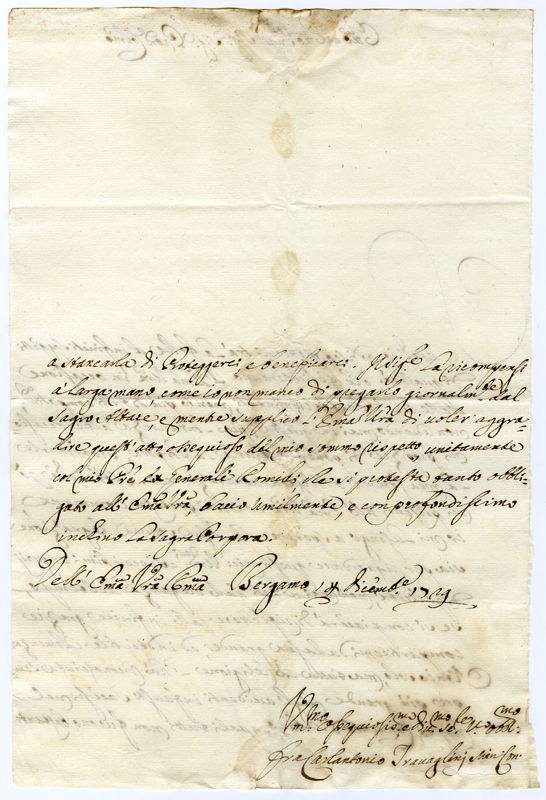 a stancarla di Proteggerci, e beneficarci. Il Sig.re La ricompensi
à larga mano, come io non manco di pregarlo giornalm.te dal
Sagro Altare, e mentre supplico l'Ema Vra di voler aggra-
dire quest'atto ossequioso del mio sommo rispetto, unitamente
col mio Pre Generale che si protesta tanto obbli-
gato all'Ema Vra, bacio umilmente, e con profondissimo
inchino La Sagra Porpora.
Dell'Ema Vra Bergamo 14 dicemb.e 1729
Um.mo ossequiosis.mo
fra Carlantonio Travaglini Min: Con: